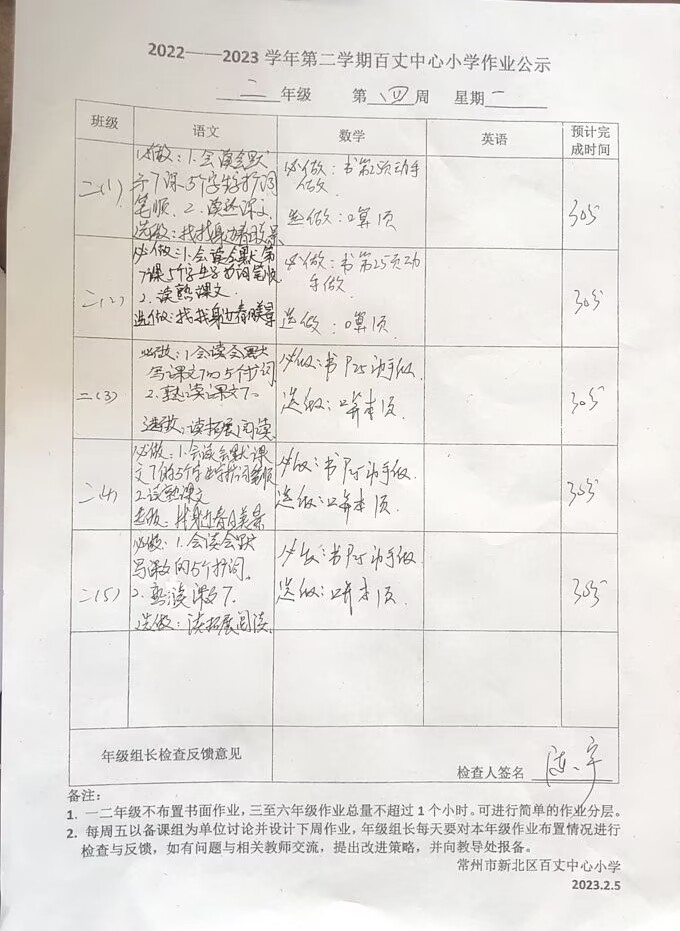 2022——2023 学年第二学期百丈中心小学作业公示
二 年级 第 四 周 星期 一
班级 语文 数学 英语 预计完成时间
二(1)
必做：1.会读会默
7课5个字生字扩词
笔顺. 2.读熟课文.
选做：找找身边春景
必做：书第25页动手
做.
选做：口算1页
30分
二(2)
必做：1.会读会默第
7课5个生字扩词笔顺
2.读熟课文.
选做：找找身边春日美景
必做：书第25页动
手做.
选做：口算1页.
30分
二(3)
必做：1会读会默
写课文7的5个扩词
2.熟读课文7.
选做：读拓展阅读
必做：书P25动手做.
选做：口算本1页.
30分
二(4)
必做：1.会读会默课
文7的5个字生字扩词笔顺
2.读熟课文
选做：找身边春日美景
必做：书P25动手做
选做：口算本1页.
30分
二(5)
必做：1.会读会默
写课文的5个扩词.
2.熟读课文7.
选做：读拓展阅读.
必做：书P25动手做.
选做：口算本1页.
30分
年级组长检查反馈意见
检查人签名
备注：
1. 一二年级不布置书面作业，三至六年级作业总量不超过 1 个小时。可进行简单的作业分层。
2. 每周五以备课组为单位讨论并设计下周作业，年级组长每天要对本年级作业布置情况进行
检查与反馈，如有问题与相关教师交流，提出改进策略，并向教导处报备。
常州市新北区百丈中心小学
2023.2.5